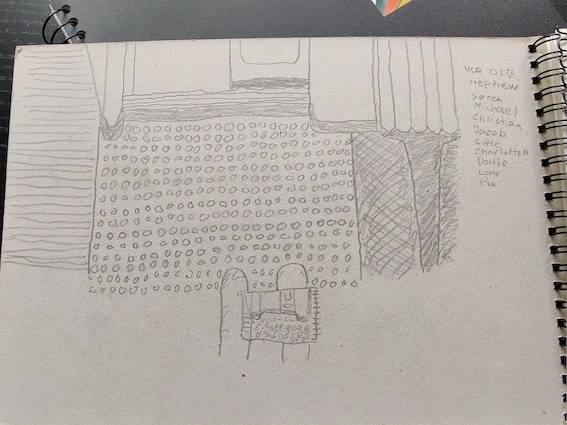 USA DSB
Nephew
Søren
Michael
Christian
Jacob
Gitte
Charlotte N
Dorte
Lone
Pia